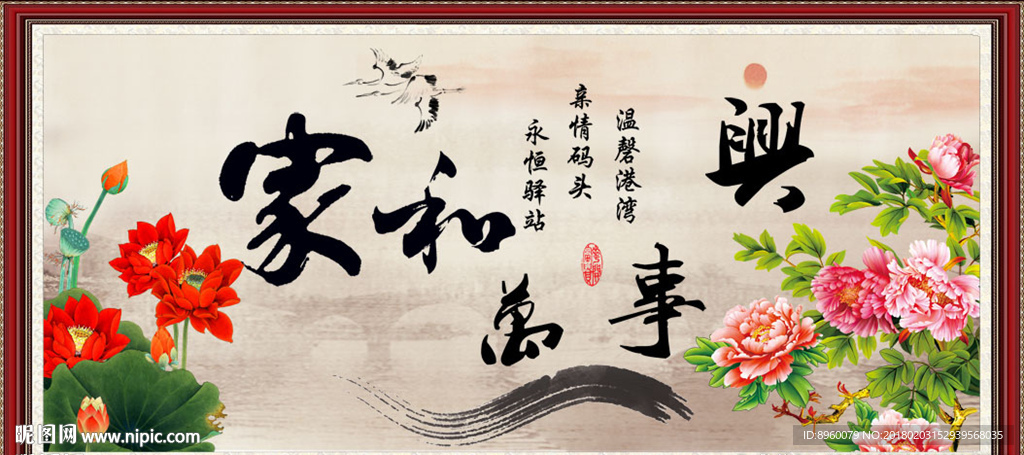 家和萬事興
温馨港湾
亲情码头
永恒驿站
昵图网 www.nipic.com
ID:8960079 NO:20180203152939568035